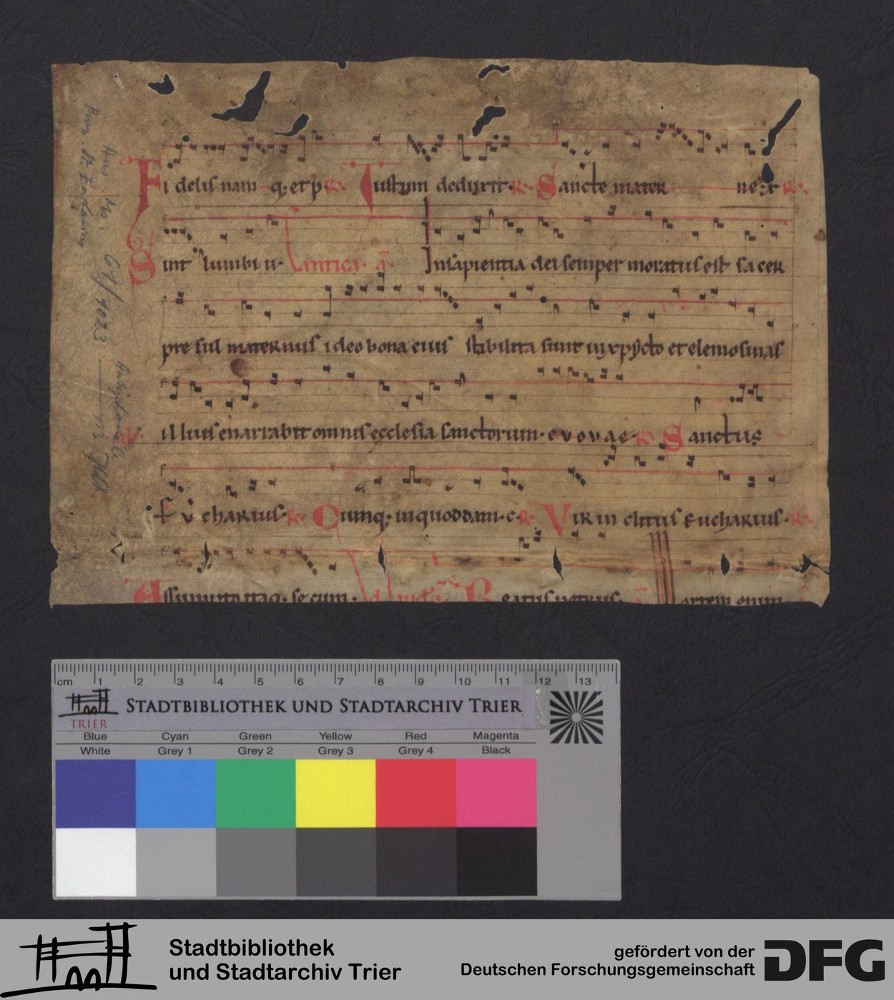 Fi delis nam q; et p R. Iustum deduxit R. Sancte mater ne R.
Sint lumbi u Cantica a In sapientia dei semper moratus est sacer
pre sul maternus ideo bona eius stabilita sunt in xpisto et elemosinas
illius enarrabit omnis ecclesia sanctorum. e v o v a e R. Sanctus
Eucharius R. Cumq; in quoddam. c R. Vir in clitus Eucharius. R.
Assumto itaq; se cum. Beatus petrus enim
cm 1 2 3 4 5 6 7 8 9 10 11 12 13
TRIER STADTBIBLIOTHEK UND STADTARCHIV TRIER
Blue Cyan Green Yellow Red Magenta
White Grey 1 Grey 2 Grey 3 Grey 4 Black
Stadtbibliothek
und Stadtarchiv Trier
gefördert von der
Deutschen Forschungsgemeinschaft
DFG